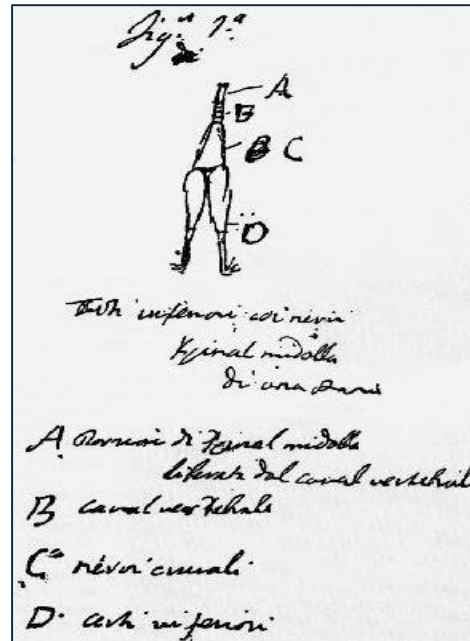 Fig.ª 1.ª
A
B
C
D
arti inferiori coi nervi
spinal midolla
di una
A porzion di spinal midolla
liberata dal canal vertebrale
B canal vertebrale
C nervi crurali
D. arti inferiori